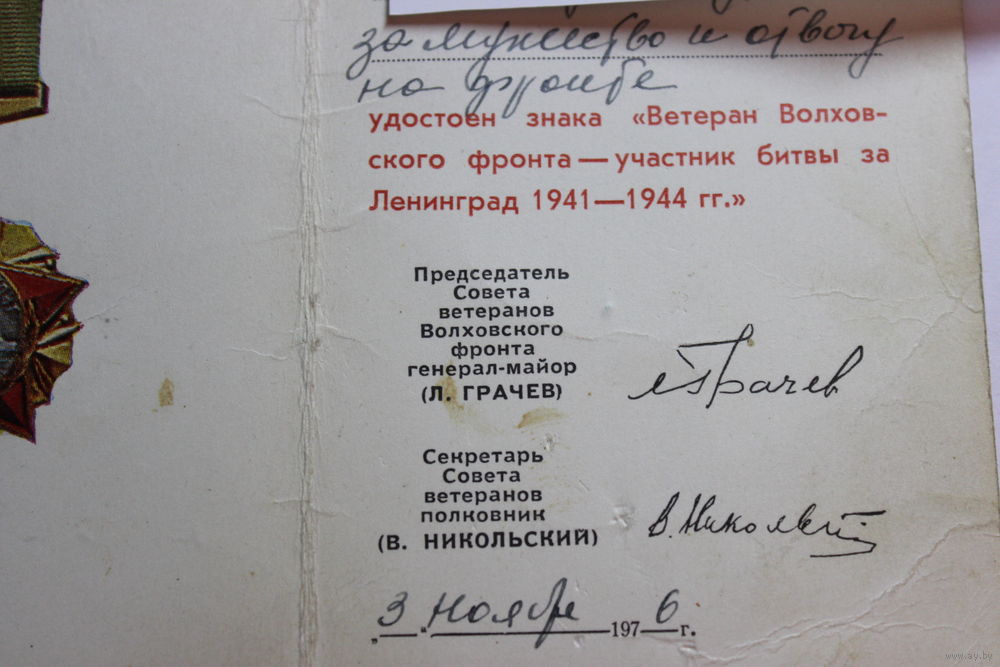 за мужество и отвагу
на фронте
удостоен знака «Ветеран Волхов-
ского фронта — участник битвы за
Ленинград 1941—1944 гг.»
Председатель
Совета
ветеранов
Волховского
фронта
генерал-майор
(Л. ГРАЧЕВ)
ЛГрачев
Секретарь
Совета
ветеранов
полковник
(В. НИКОЛЬСКИЙ)
В. Никольский
„3" ноября 1976 г.
www.ay.by